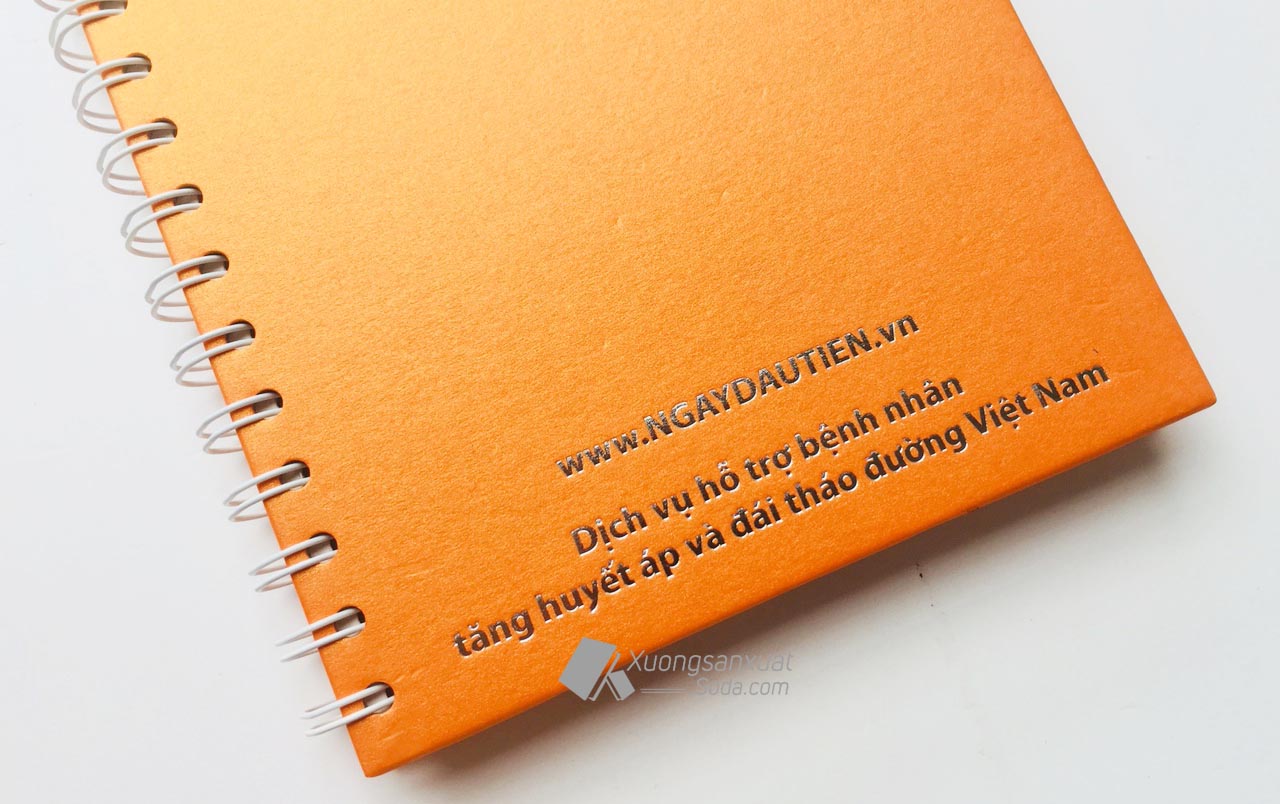 www.NGAYDAUTIEN.vn
Dịch vụ hỗ trợ bệnh nhân
tăng huyết áp và đái tháo đường Việt Nam
Xuongsanxuat
Soda.com